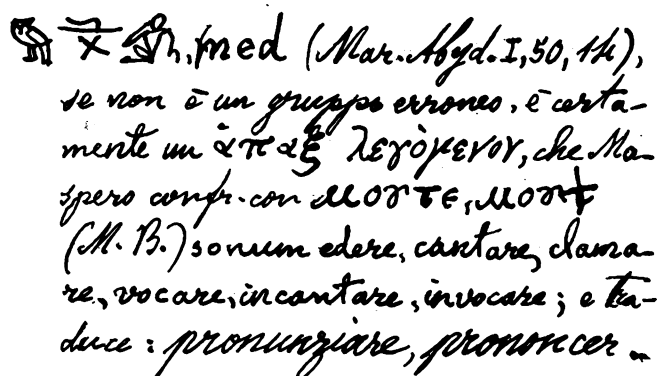 , med (Mar. Abyd. I, 50, 14),
se non è un gruppo erroneo, è certa-
mente un ἁπαξ λεγὸμενον, che Ma-
spero confr. con ⲙⲟⲩⲧⲉ, ⲙⲟⲩϯ
(M. B.) sonum edere, cantare, clama-
re, vocare, incantare, invocare; e tra-
duce: pronunziare, prononcer.